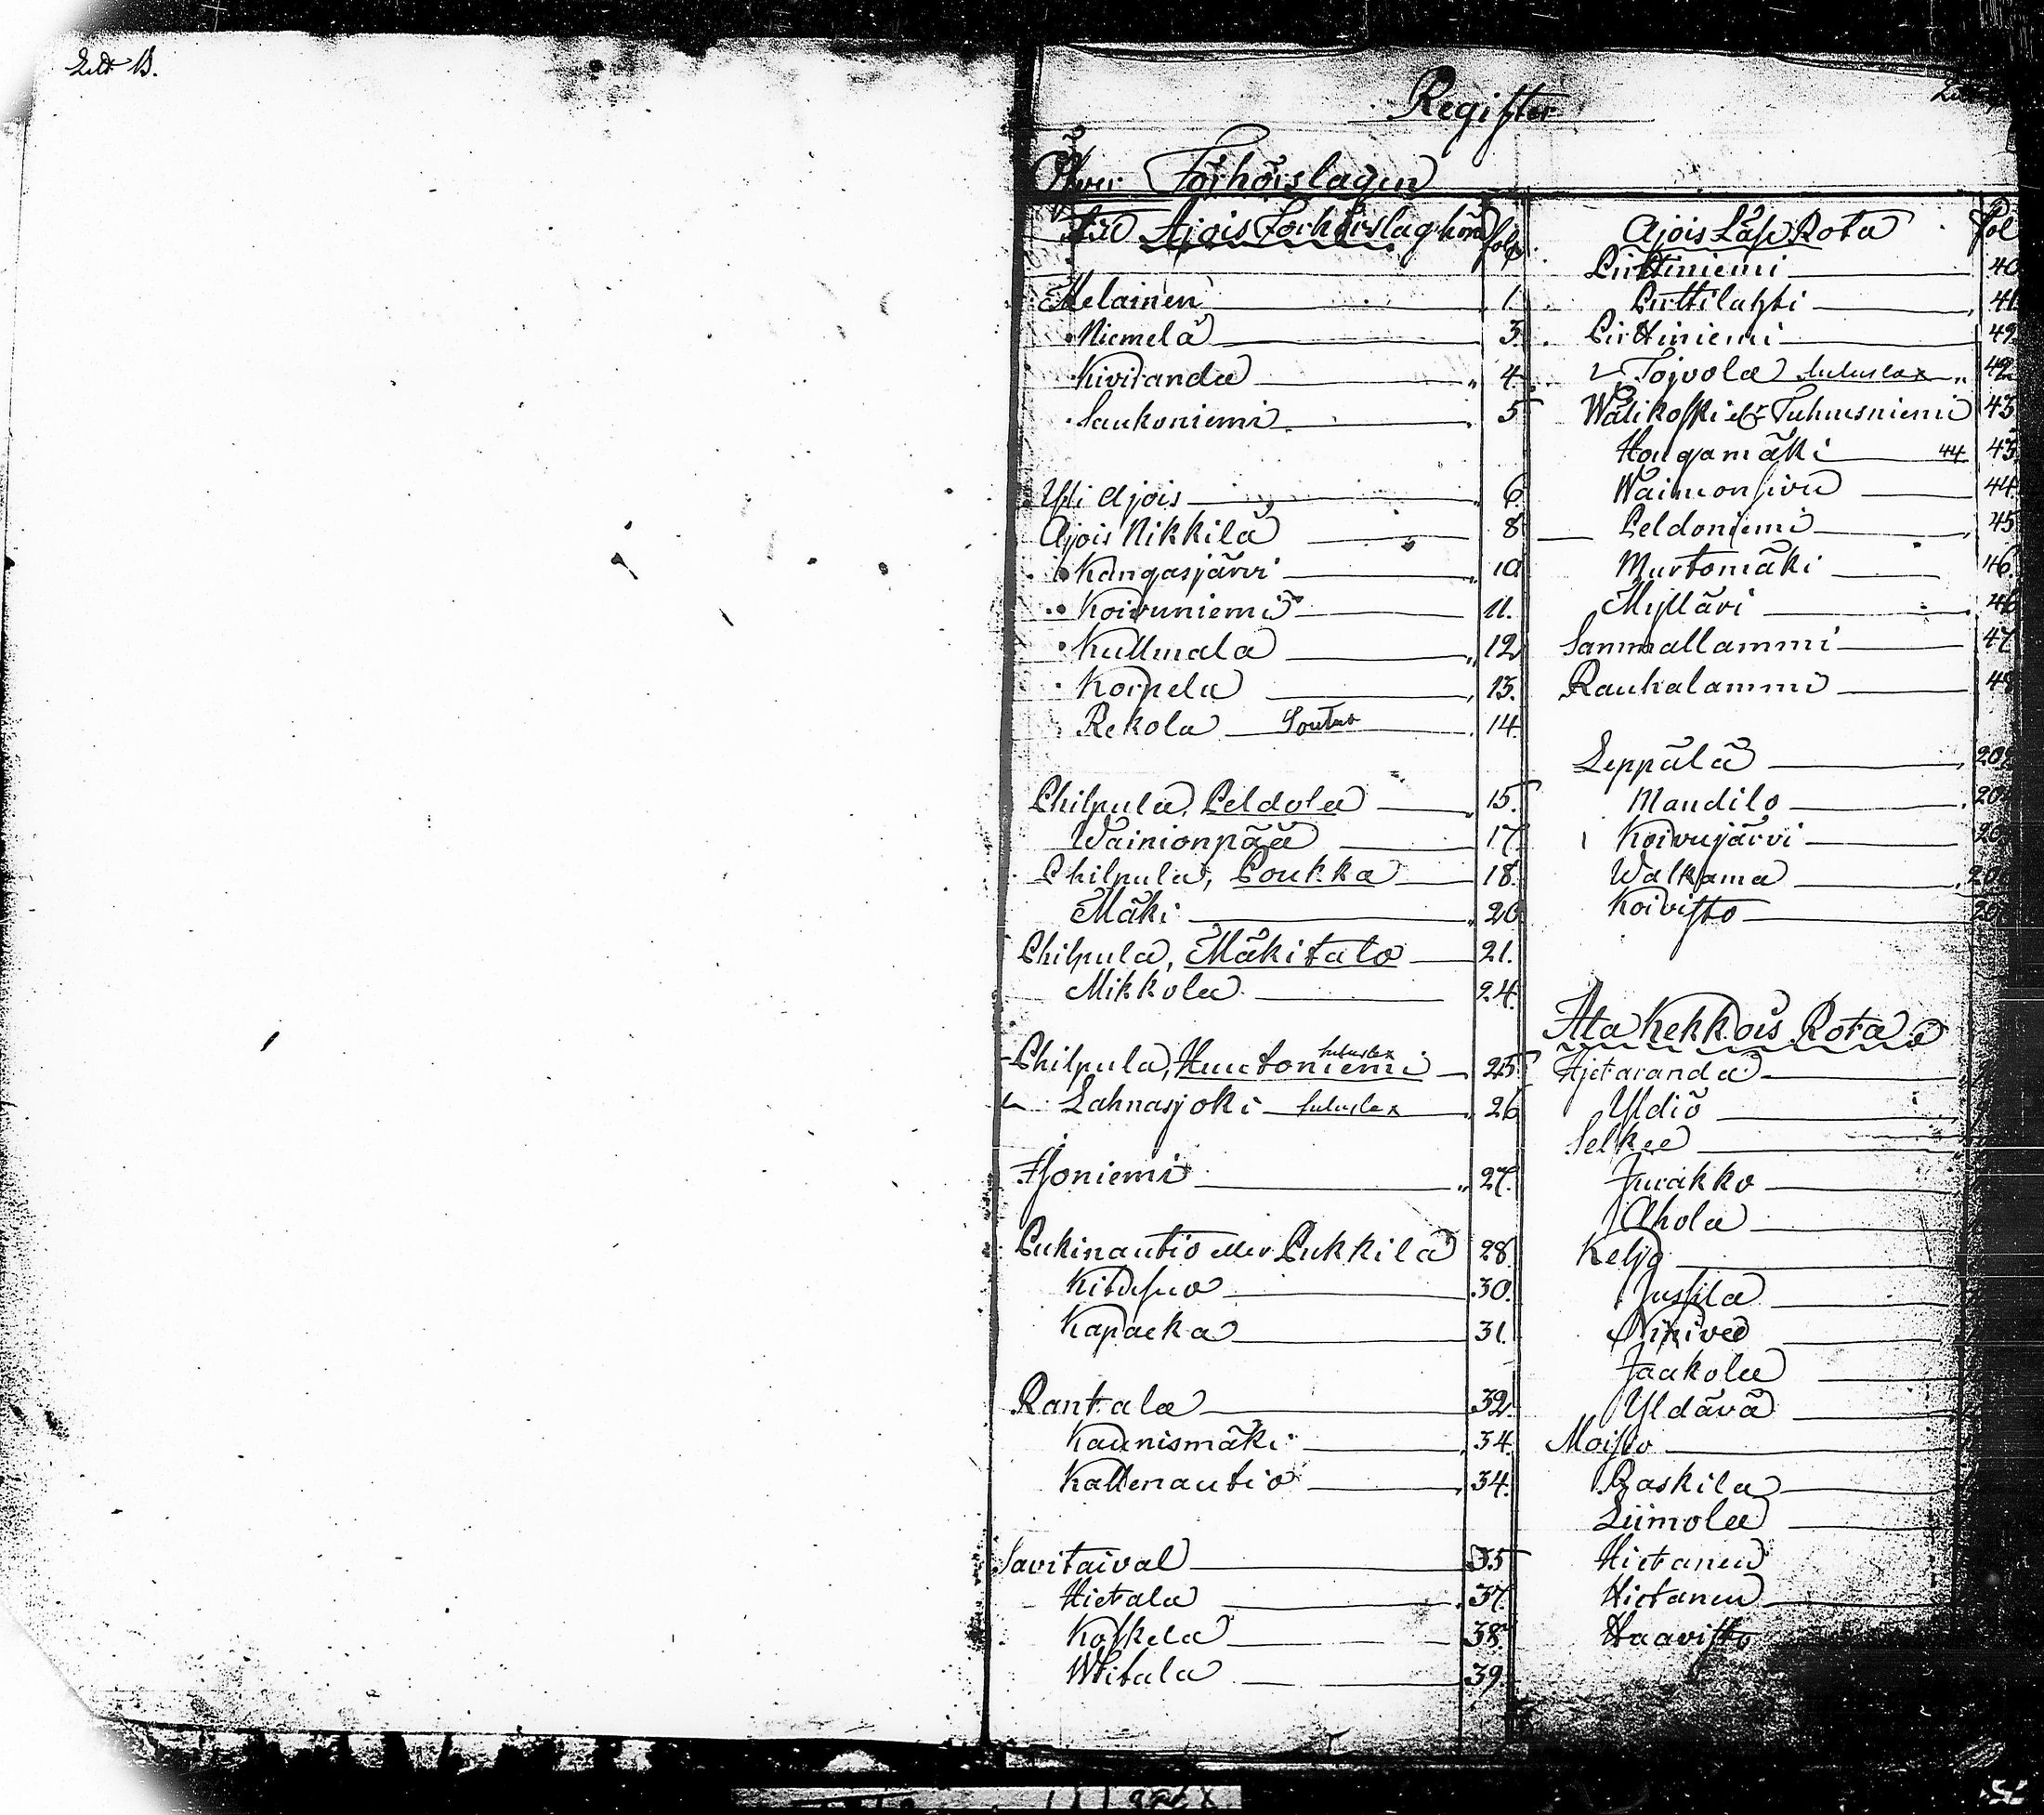 Litt B.
Register
Öfver Förhörslagen
Ajois Förhörslag hörn
fol.
Melainen 1.
Niemelä 3.
Kiviranda 4.
Saukoniemi 5
Yli Ajois 6
Ajois Nikkilä 8
Kangasjärvi 10
Koivuniemi 11.
Kullmala 12
Korpela 13.
Rekola 14.
Philpula, Peldola 15.
Wainionpää 17
Philpula, Poukka 18.
Mäki 20
Philpula, Mäkitalo 21.
Mikkola 24.
Philpula, Huutoniemi Suluslax 25
Lahnasjoki Suluslax 26
Isoniemi 27.
Pukinautio eller Pukkila 28.
Kitusuo 30.
Kapaeka 31.
Rantala 32.
Kaunismäki 34.
Kattenautio 34.
Savitaival 35
Hietala 37.
Koskela 38.
Wiitala 39.
Ajois Läse Rota
fol
Pirttiniemi 40
Pirttilahti 41
Pirttiniemi 42
Toivola Suluslax 42
Wälikoski Tuhusniemi 43
Hongamäki 44 43
Wainionsivu 44.
Peldoniemi 45
Murtomäki 46.
Mylläri 46
Sammallammi 47
Rauhalammi
Leppälä
Mandilo
Koivujärvi
Walkama
Koivisto
Ala Kekkois Rota
Hietaranda
Yldiö
Selkee
Jurakko
Ahola
Keljo
Jussila
Jaakola
Yldävä
Moisio
Raskila
Liimola
Hietanen
Hietanen
Haavisto